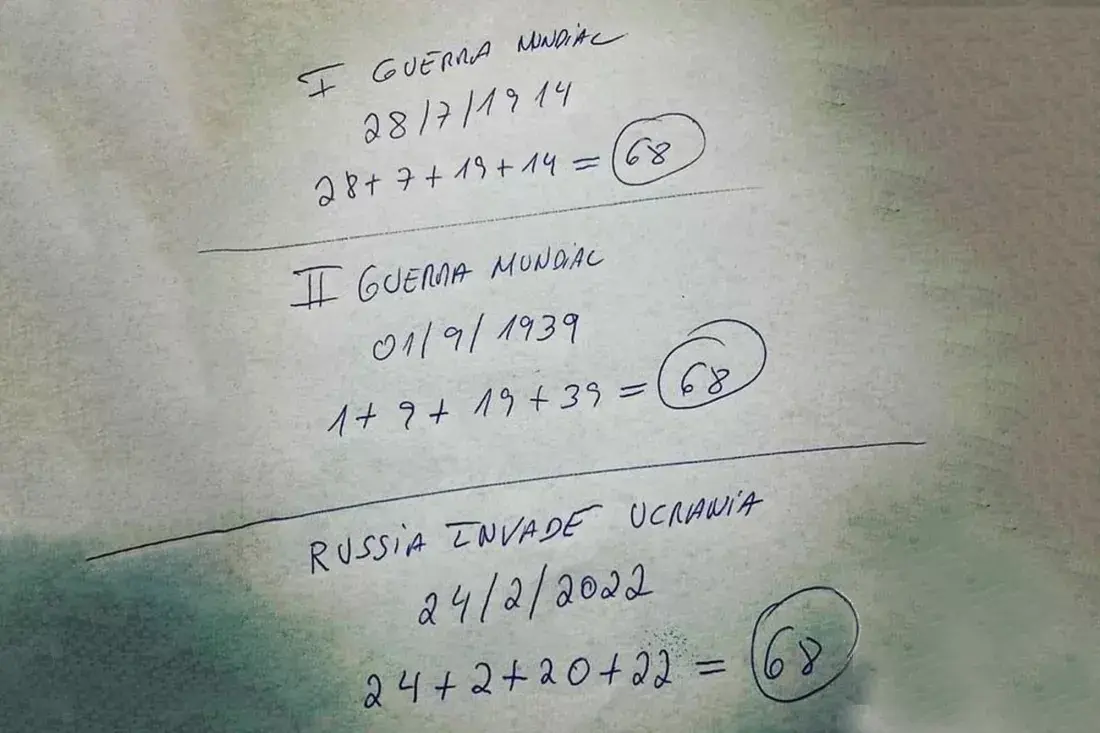 I GUERRA MUNDIAL
28/7/1914
28+7+19+14=68
II GUERRA MUNDIAL
01/9/1939
1+9+19+39=68
RUSSIA INVADE UCRANIA
24/2/2022
24+2+20+22=68